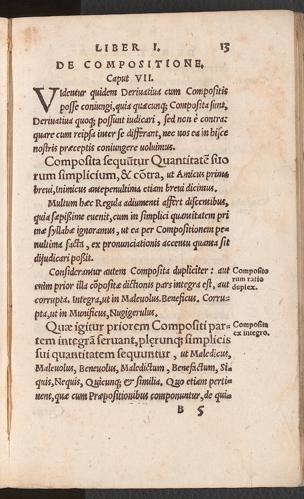 LIBER I. 13
DE COMPOSITIONE.
Caput VII.
Videntur quidem Deriuatiua cum Compositis
posse coniungi, quia quæcunq; Composita sunt,
Deriuatiua quoq; possunt iudicari, sed non è contra:
quare cum reipsa inter se differant, nec nos ea in hisce
nostris præceptis coniungere uoluimus.
Composita sequūtur Quantitatē suo
rum simplicium, & cōtra, ut Amicus prima
breui, Inimicus antepenultima etiam breui dicimus.
Multum hæc Regula adiumenti affert discentibus,
quia sæpißime euenit, cum in simplici quantitatem pri
mæ syllabæ ignoramus, ut ea per Compositionem pe-
nultima facta, ex pronunciationis accentu quanta sit
dijudicari poßit.
Considerantur autem Composita dupliciter: aut
enim prior illa cōpositæ dictionis pars integra est, aut
corrupta. Integra, ut in Maleuolus. Beneficus. Corru-
pta, ut in Munificus, Nugigerulus.
Composito
rum ratio
duplex.
Quæ igitur priorem Compositi par-
tem integrā seruant, plerunq; simplicis
sui quantitatem sequuntur, ut Maledicus,
Maleuolus, Beneuolus, Maledictum, Benefactum, Si-
quis, Nequis, Quicunq; & similia. Quo etiam perti-
nent, quæ cum Præpositionibus componuntur, de qui-
Composita
ex integro.
B 5